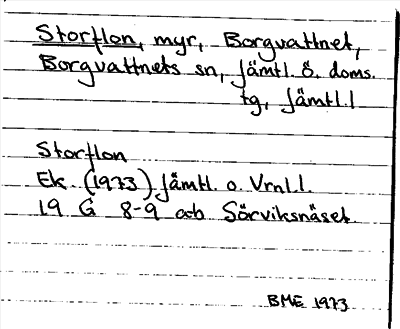 Storflon, myr, Borgvattnet,
Borgvattnets sn, Jämtl. ö. doms.
tg, Jämtl. l
Storflon
Ek. (1973) Jämtl. o. Vrnl. l.
19 G 8-9 ab Sörviksnäset
BME 1973